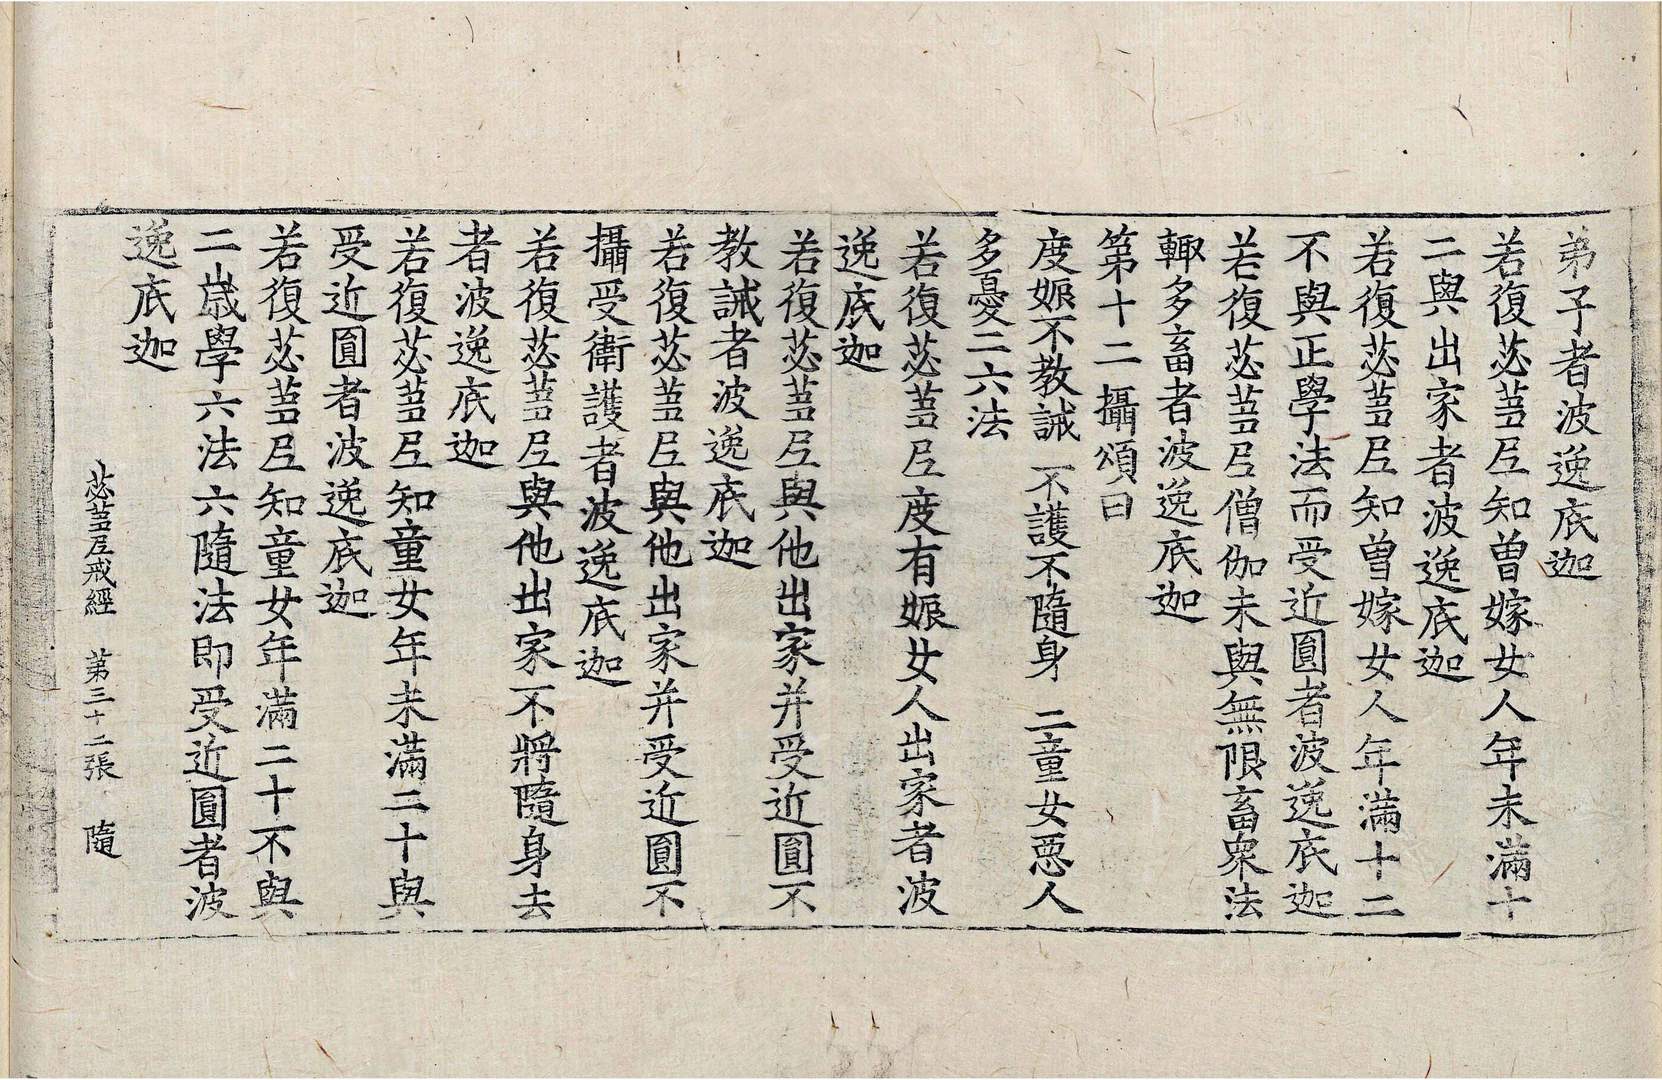 弟子者波逸底迦
若復苾芻尼知曾嫁女人年未滿十
二與出家者波逸底迦
若復苾芻尼知曾嫁女人年滿十二
不與正學法而受近圓者波逸底迦
若復苾芻尼僧伽未與無限畜衆法
輙多畜者波逸底迦
第十二攝頌曰
度娠不教誡 不護不隨身 二童女惡人
多憂二六法
若復苾芻尼度有娠女人出家者波
逸底迦
若復苾芻尼與他出家并受近圓不
教誡者波逸底迦
若復苾芻尼與他出家并受近圓不
攝受衛護者波逸底迦
若復苾芻尼與他出家不將隨身去
者波逸底迦
若復苾芻尼知童女年未滿二十與
受近圓者波逸底迦
若復苾芻尼知童女年滿二十不與
二歲學六法六隨法即受近圓者波
逸底迦
苾芻尼戒經 第三十二張 隨